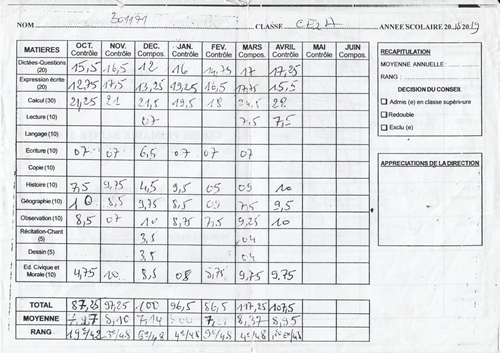 NOM 301171 CLASSE CE2A ANNEE SCOLAIRE 2018 2019
MATIERES OCT. Contrôle NOV. Contrôle DEC. Compos. JAN. Contrôle FEV. Contrôle MARS Compos. AVRIL Contrôle MAI Contrôle JUIN Compos.
Dictées-Questions (20) 15,5 16,5 12 16 14,75 17 17,25
Expression écrite (20) 12,75 17,5 13,25 19,25 16,5 17,75 15,5
Calcul (30) 21,25 21 21,5 19,5 18 24,5 28
Lecture (10) 07 7,5 7,5
Langage (10)
Ecriture (10) 07 07 6,5 07 07 07
Copie (10)
Histoire (10) 7,5 9,75 4,5 9,5 05 09 10
Géographie (10) 10 8,5 9,75 8,5 09 7,5 9,5
Observation (10) 8,5 07 10 8,75 7,5 9,25 10
Récitation-Chant (5) 3,5 04
Dessin (5) 3,5 04
Ed. Civique et Morale (10) 4,75 10 8,5 08 8,75 9,75 9.75
TOTAL 87,25 97,25 100 96,5 86,5 117,25 107,5
MOYENNE 8,10 7,14 8,37 8,95
RANG 19e/48 4e/48 9e/48 4e/48
RECAPITULATION
MOYENNE ANNUELLE :
RANG :
DECISION DU CONSEIL
Admis (e) en classe supérivure
Redouble
Exclu (e)
APPRECIATIONS DE LA DIRECTION